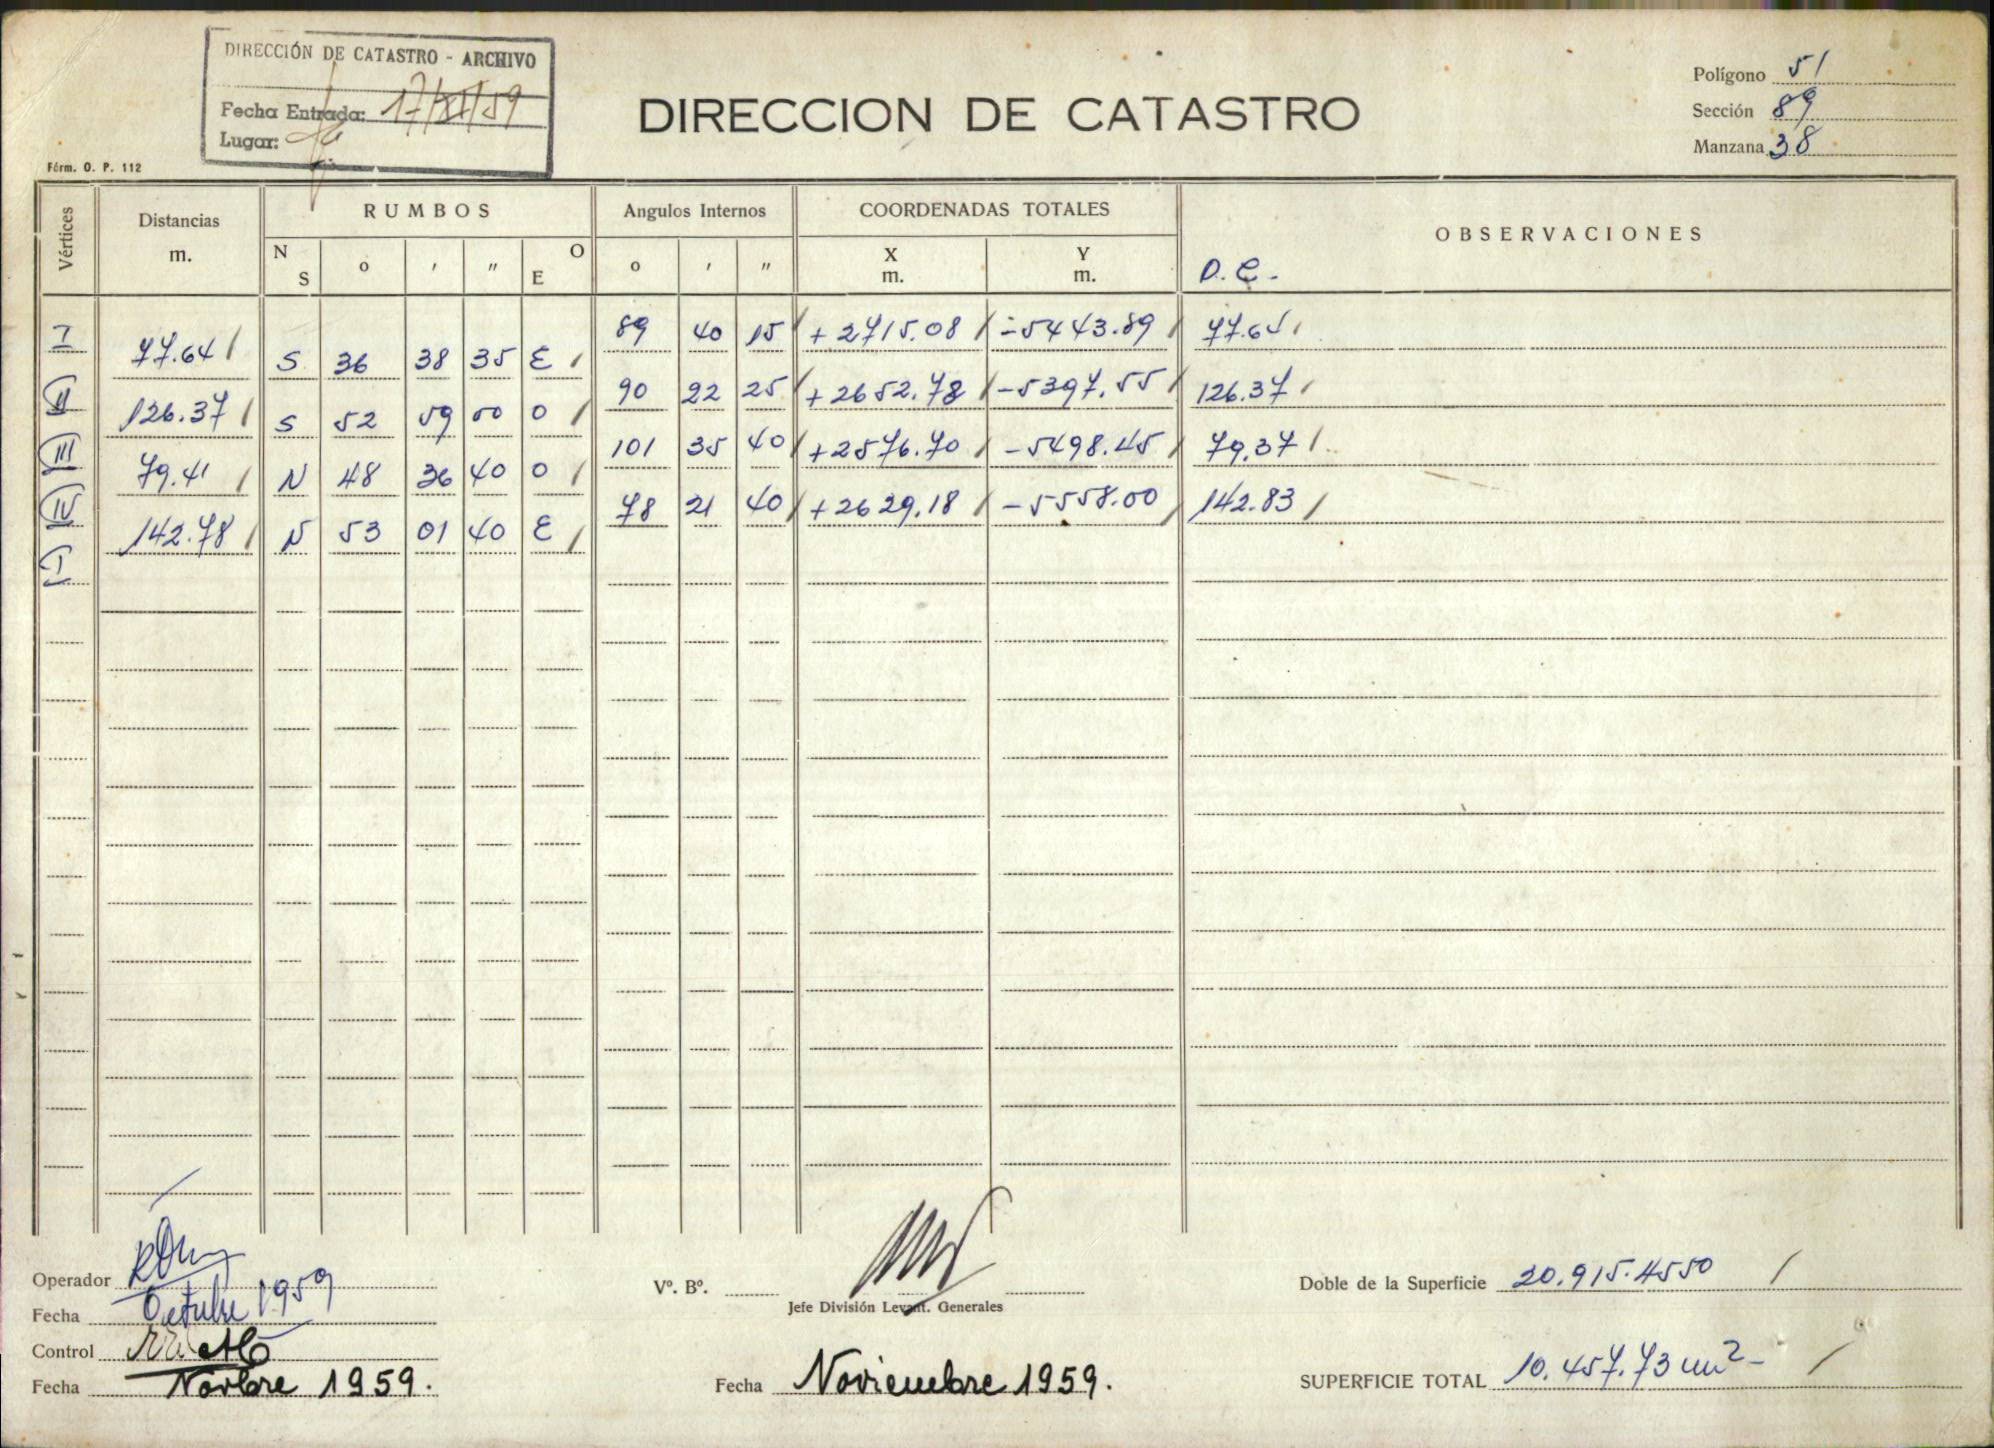 DIRECCIÓN DE CATASTRO - ARCHIVO
Fecha Entrada: 17/XI/59
Lugar:
DIRECCION DE CATASTRO
Polígono 51
Sección 89
Manzana 38
Fórm. O. P. 112
Vértices Distancias m. RUMBOS N S o ' " E O Angulos Internos o ' " COORDENADAS TOTALES X m. Y m. OBSERVACIONES
D. C.
I 89 40 15 +2715.08 -5443.89 77.64
77.64 S 36 38 35 E
II 90 22 25 +2652.78 -5397.55 126.37
126.37 S 52 59 00 O
III 101 35 40 +2576.70 -5498.45 79.37
79.41 N 48 36 40 O
IV 78 21 40 +2629.18 -5558.00 142.83
142.78 N 53 01 40 E
I
Operador
Fecha Octubre 1959
Control
Fecha Novbre 1959.
Vº. Bº.
Jefe División Levant. Generales
Fecha Noviembre 1959.
Doble de la Superficie 20.915.4550
SUPERFICIE TOTAL 10.457.73 m2-